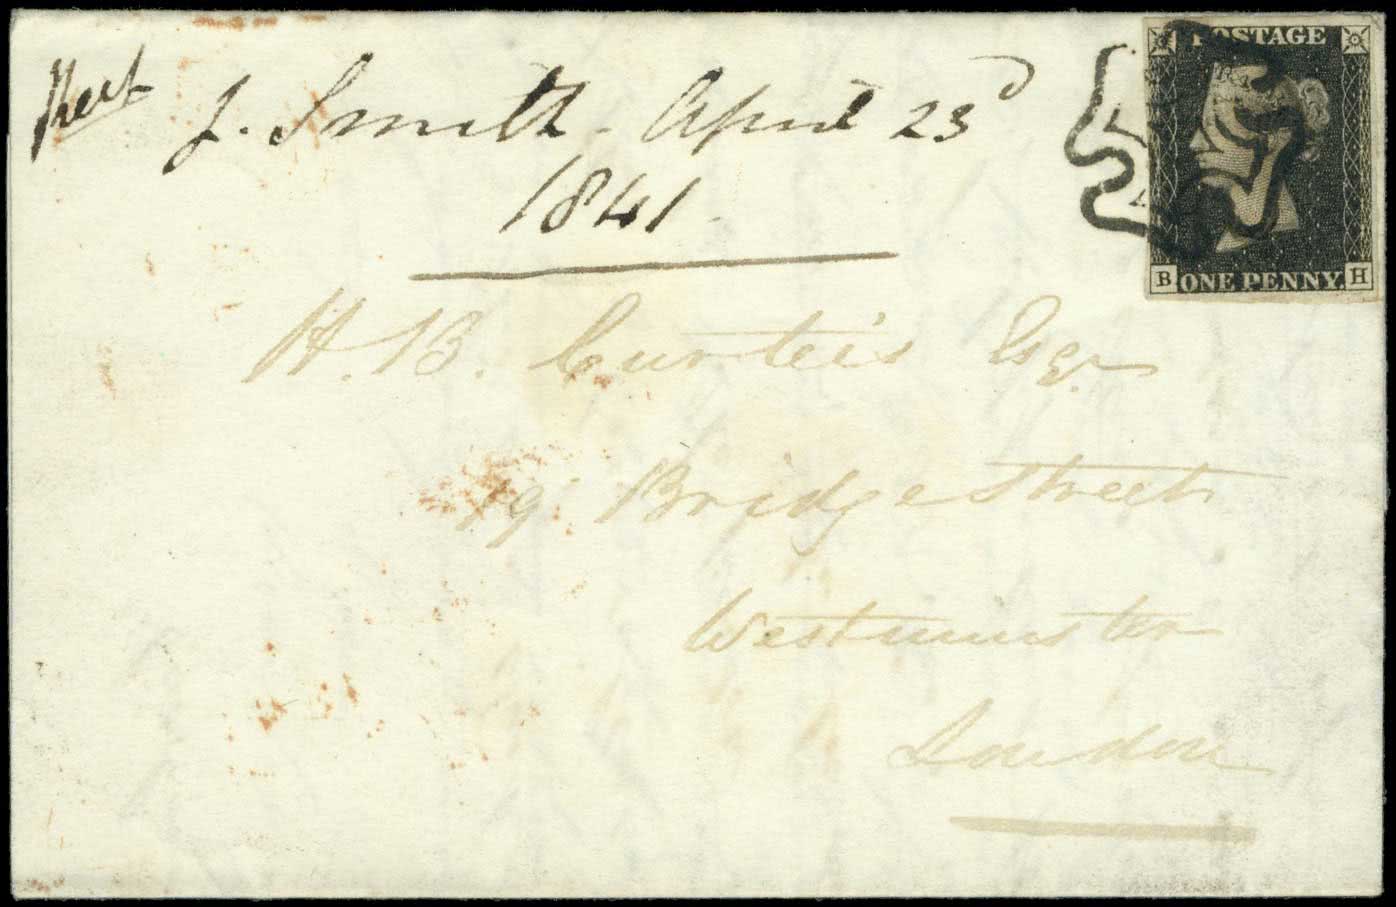 J. Smith. April 23d
1841.
H. B. Curteis Esqr
19 Bridge Street
Westminster
London
POSTAGE
B ONE PENNY. H